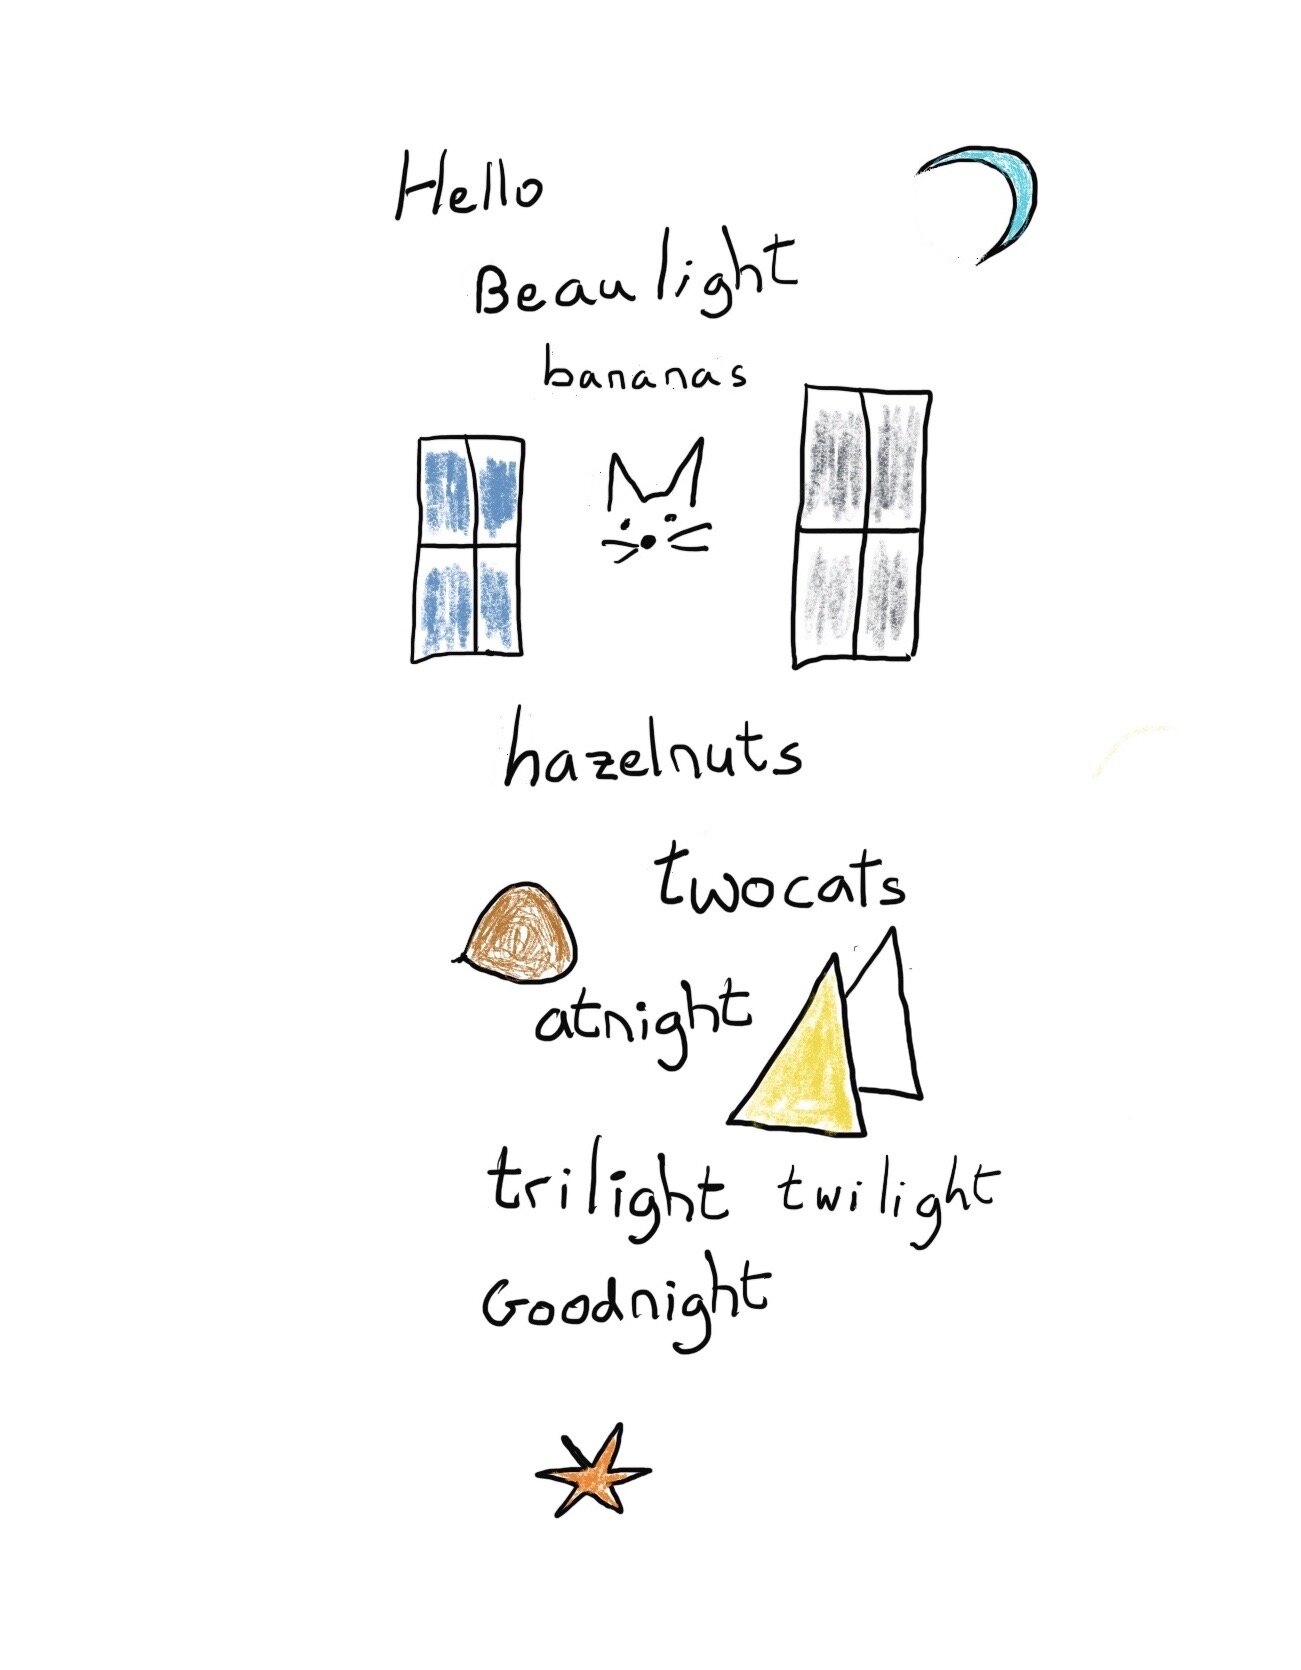 Hello
Beau light
bananas
hazelnuts
twocats
atnight
trilight twilight
Goodnight